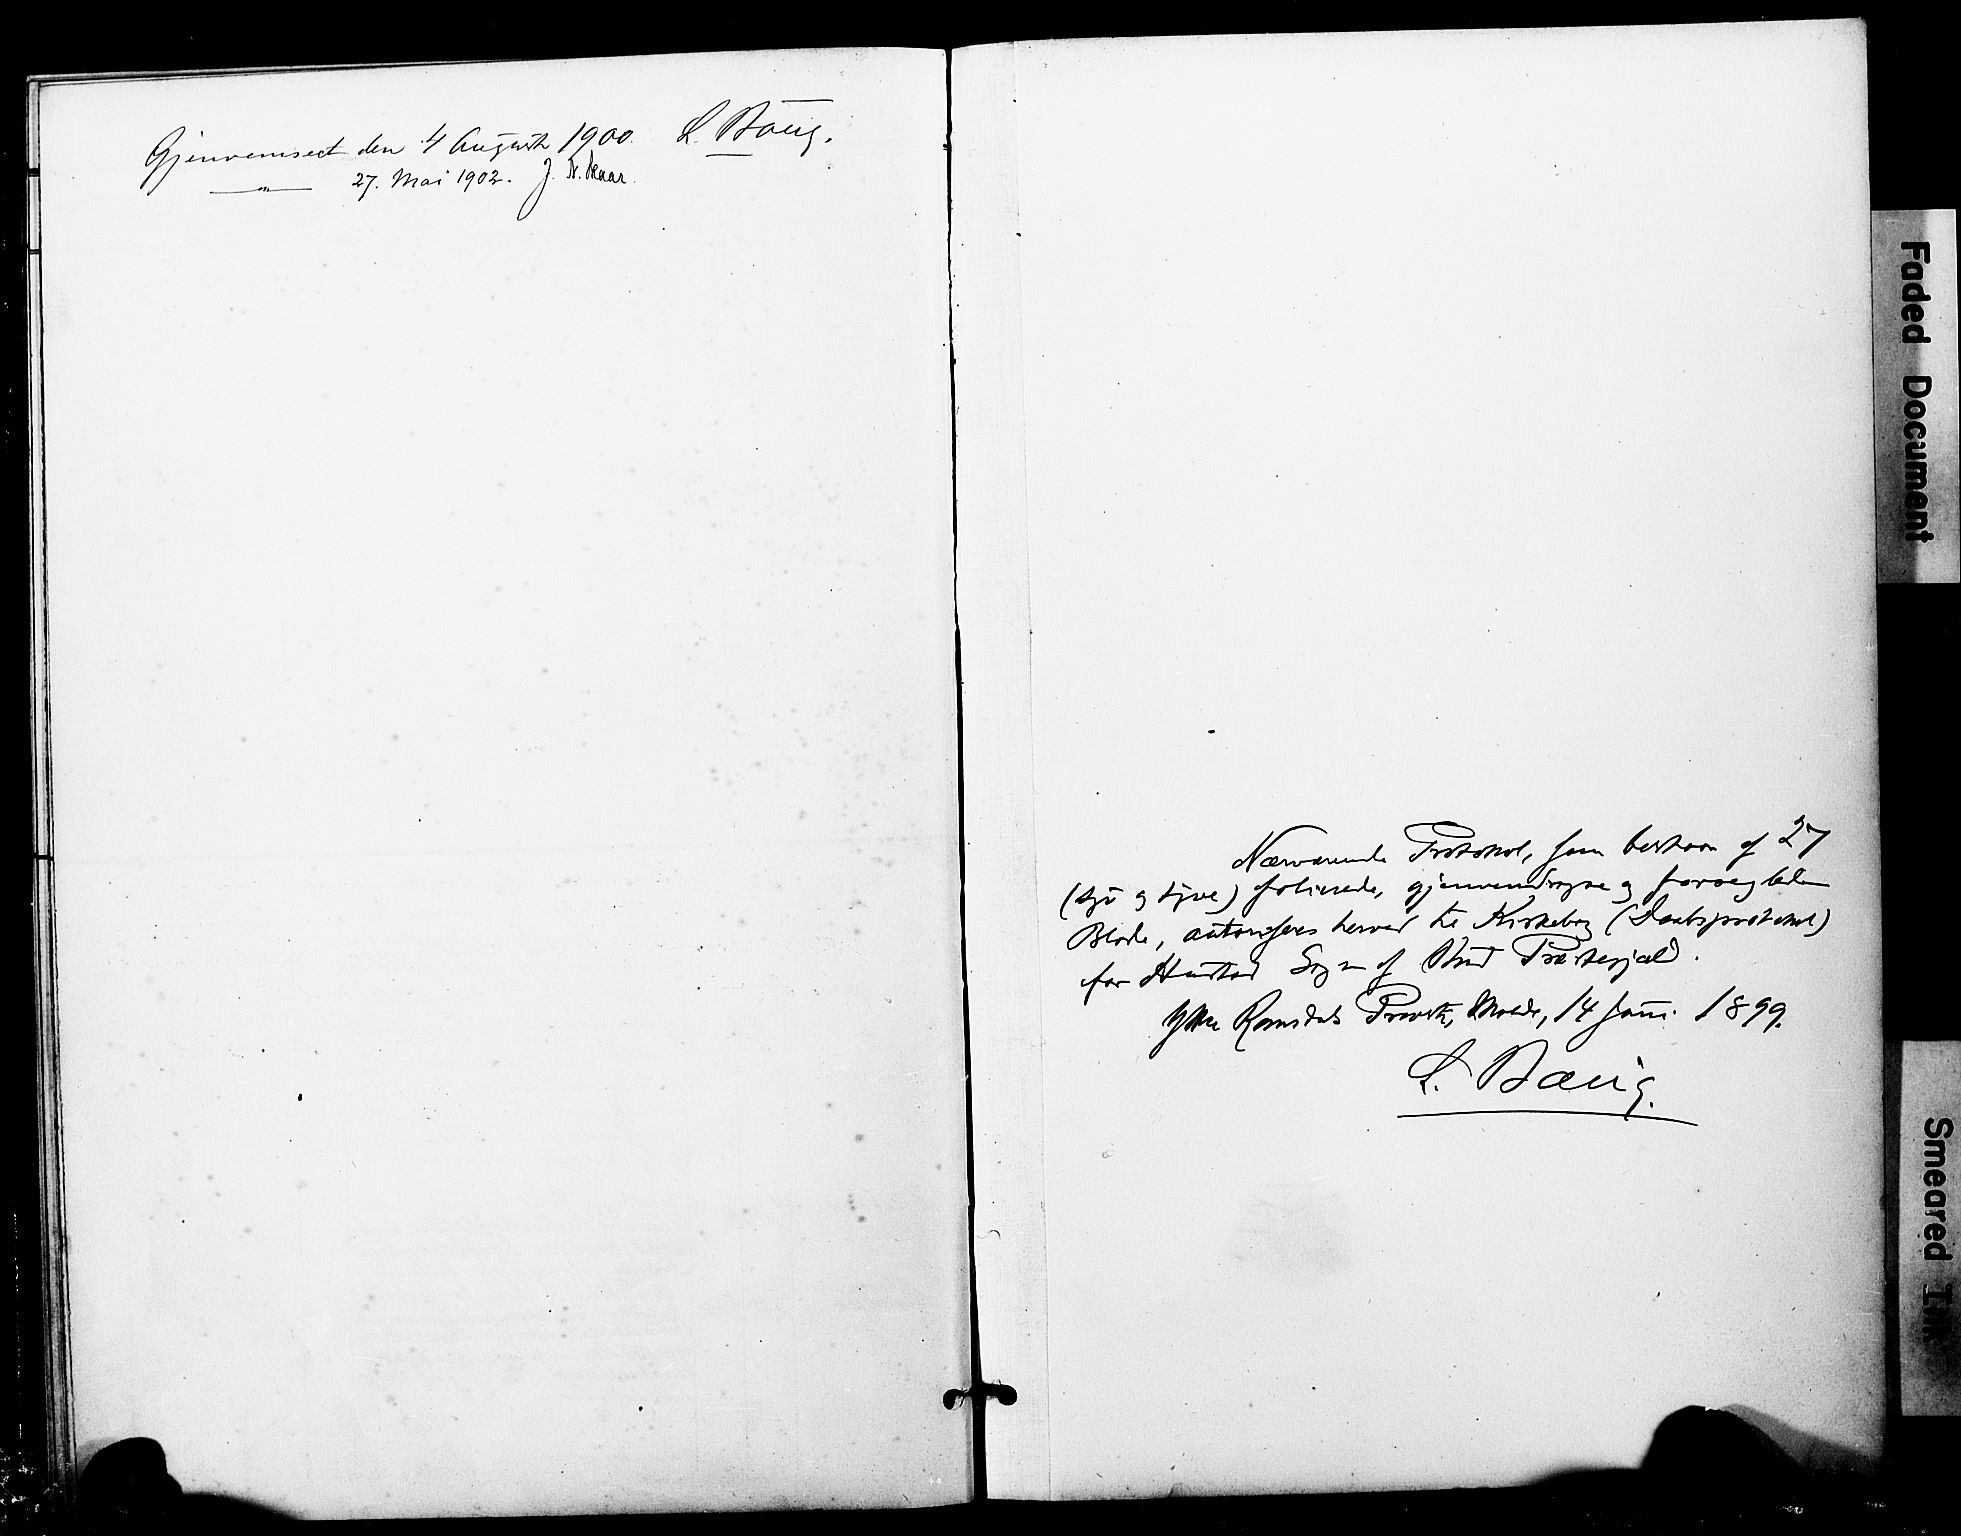 Gjennemseet den 4 August 1900. L. Bang.
— " — 27. Mai 1902. J. N. Skaar.
Nærværende Protokol, som bestaar af 27
(syv og tyve) folierede, gjennemdragne og forseglede
Blade, autoriseres herved til Kirkebog (Daabsprotokol)
for Hustad Sogn af Bud Præstegjæld.
Ytre Romsdals Provsti, Molde, 14 Juni 1899.
L. Bang.
Faded Document
Smeared Ink